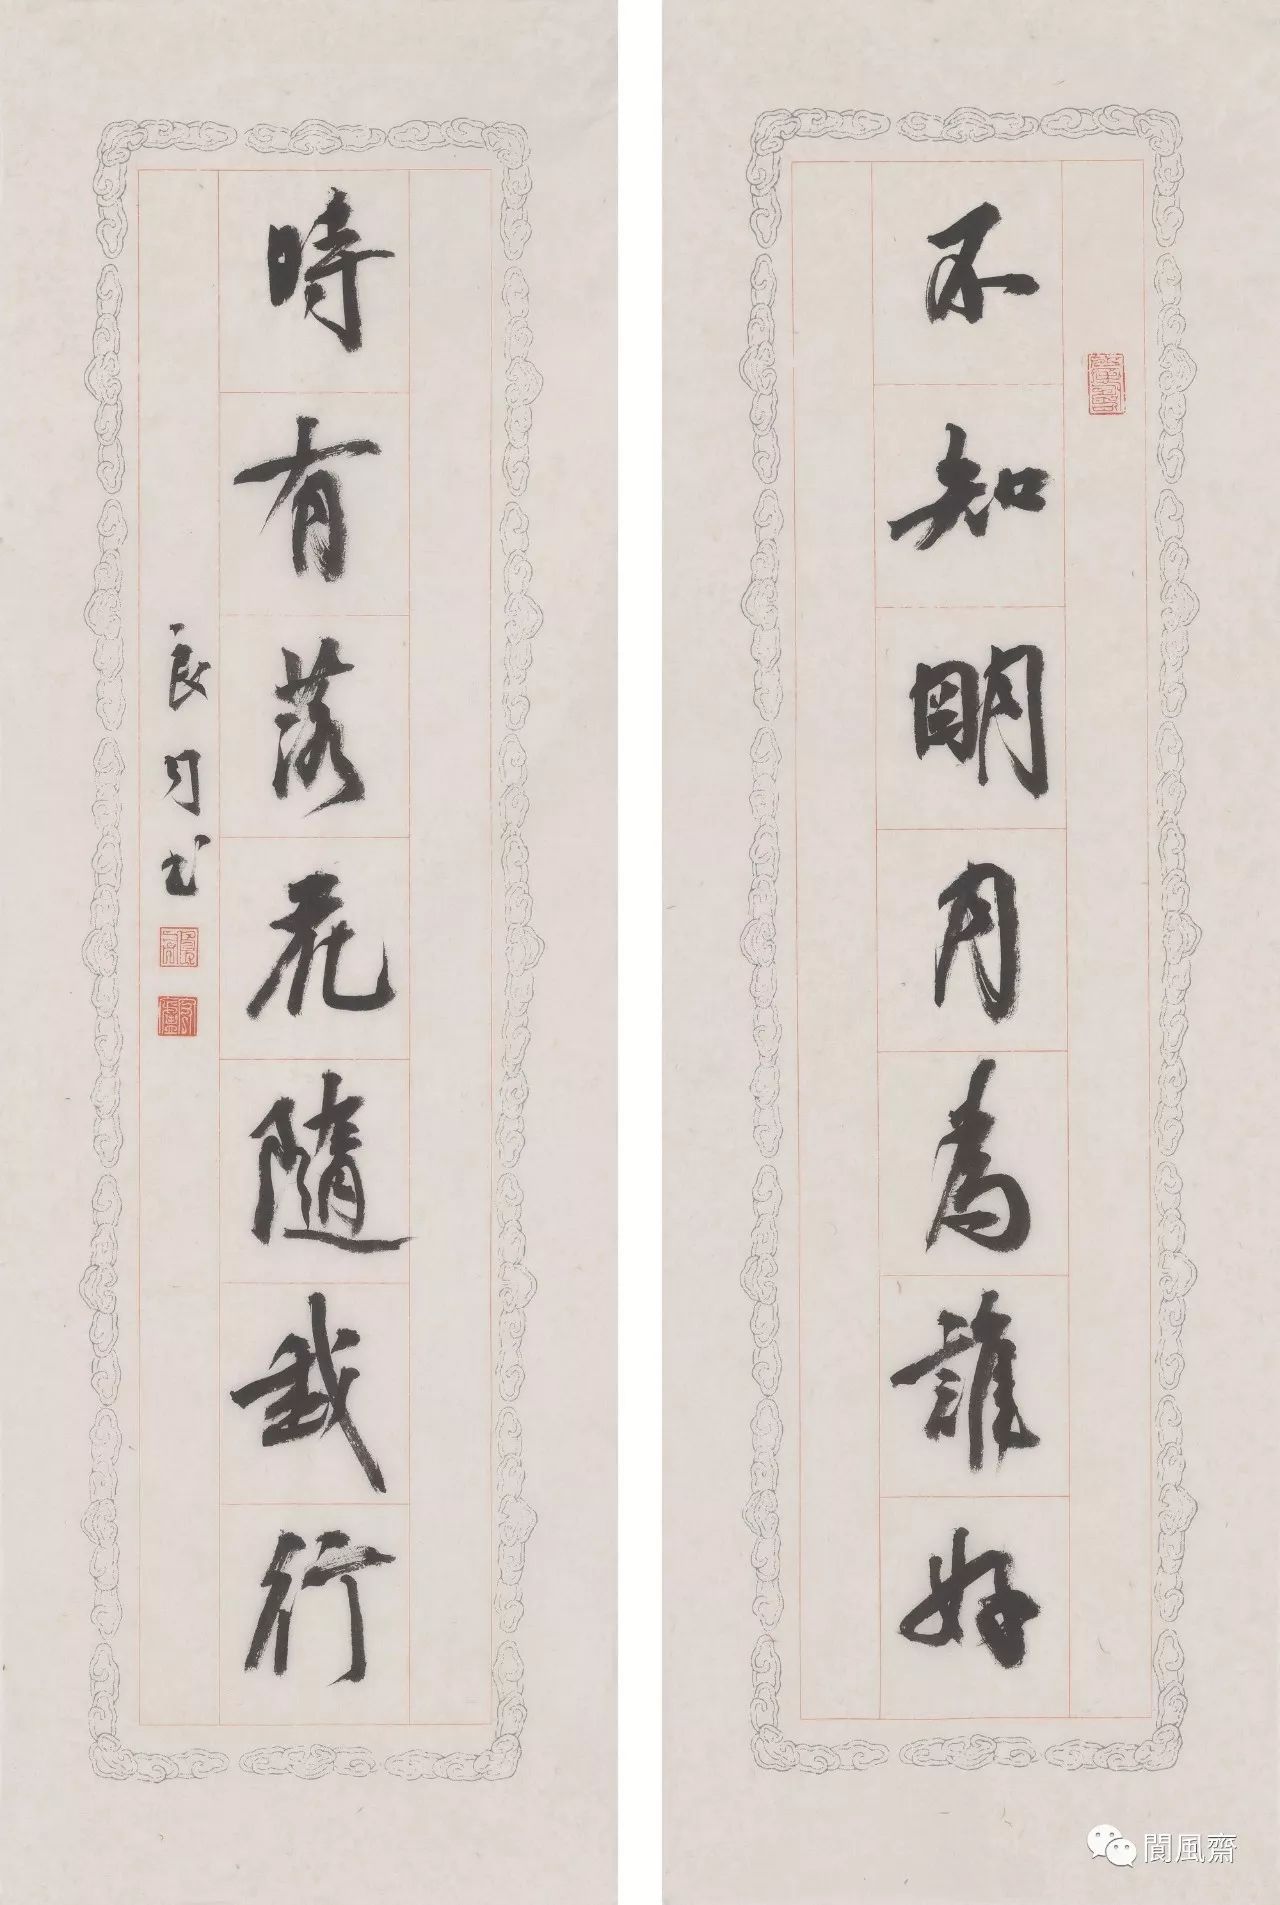 不知明月為誰好
時有落花隨我行
良月书
閬風齋